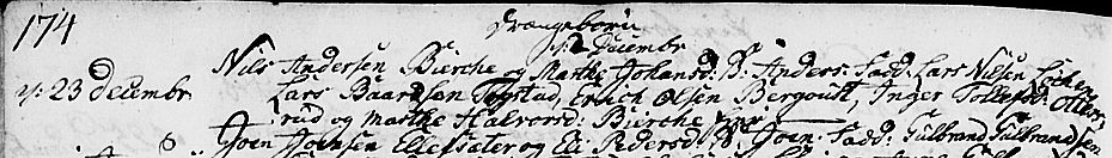 174
Drængebørn
d: 2 Decembr
Nils Andersen Bierche og Marthe Johansd: B: Anders. Fadd. Lars Nilsen Løchen
d: 23 Decembr. Lars Baardsen Togstad, Erich Olsen Bergoust, Inger Tollefsd: Otters
rud og Marthe Halvorsd: Bierche
Joen Joensen Ellefsæter og Eli Pedersd: B: Joen. Fadd: Gulbrand Gulbrandsen